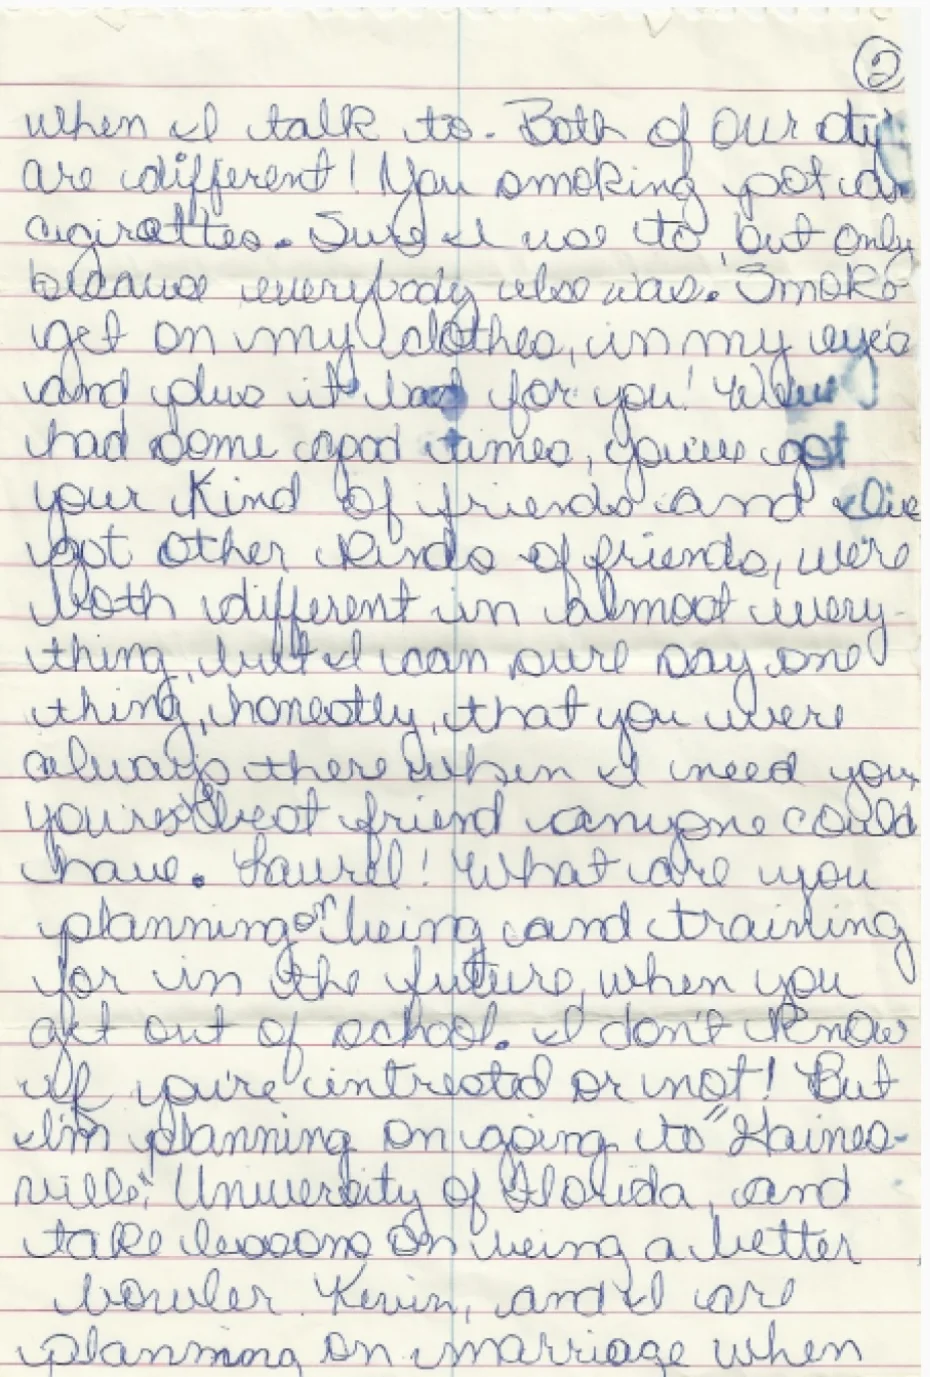 ②
when I talk to. Both of our sty
are different! You smoking pot an
cigirattes. Sure I use to, but only
because everybody else was. Smoke
get on my clothes, in my eye's
and plus it bad for you! We've
had some good times, you've got
your kind of friends and I've
got other kinds of friends, we're
both different in almost every-
thing, but I can sure say one
thing, honestly, that you were
always there when I need you,
your best friend anyone could
have. Laurel! What are you
planning on being and training
for in the future, when you
get out of school. I don't know
if you're intrested or not! But
I'm planning on going to "Gaines-
ville" University of Florida, and
take lessons on being a better
bowler. Kevin, and I are
planning on marriage when